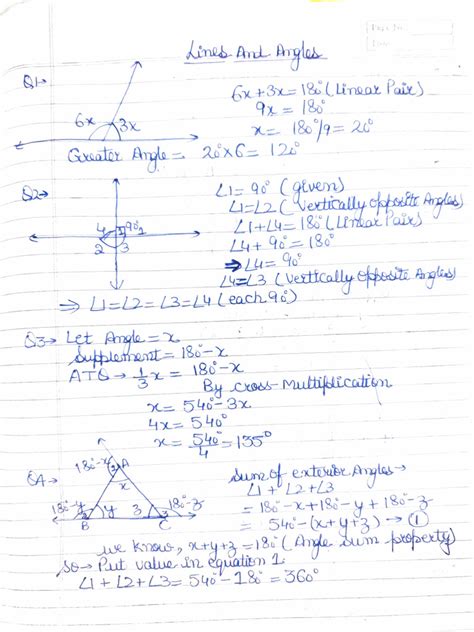 Page No.
Date
Lines And Angles
Q1→
6x
3x
6x+3x=180° (Linear Pair)
9x = 180°
x = 180°/9 = 20°
Greater Angle = 20°×6 = 120°
Q2→
4
1
90°
2
3
∠1=90° (given)
∠1=∠2 (Vertically Opposite Angles)
∠1+∠4=180° (Linear Pair)
∠4+90°=180°
⇒∠4=90°
∠4=∠3 (Vertically Opposite Angles)
⇒ ∠1=∠2=∠3=∠4 (each 90°)
Q3→ Let Angle = x
Supplement = 180°-x
ATQ→ 1/3 x = 180°-x
By cross-Multiplication
x = 540°-3x
4x = 540°
x = 540°/4 = 135°
Q4→
180°-x
A
x
180°-y
y
B
z
180°-z
C
Sum of exterior Angles→
∠1+∠2+∠3
= 180°-x+180°-y+180°-z
= 540°-(x+y+z) → ①
we know, x+y+z=180° (Angle sum property)
so→ Put value in equation 1
∠1+∠2+∠3=540°-180°=360°